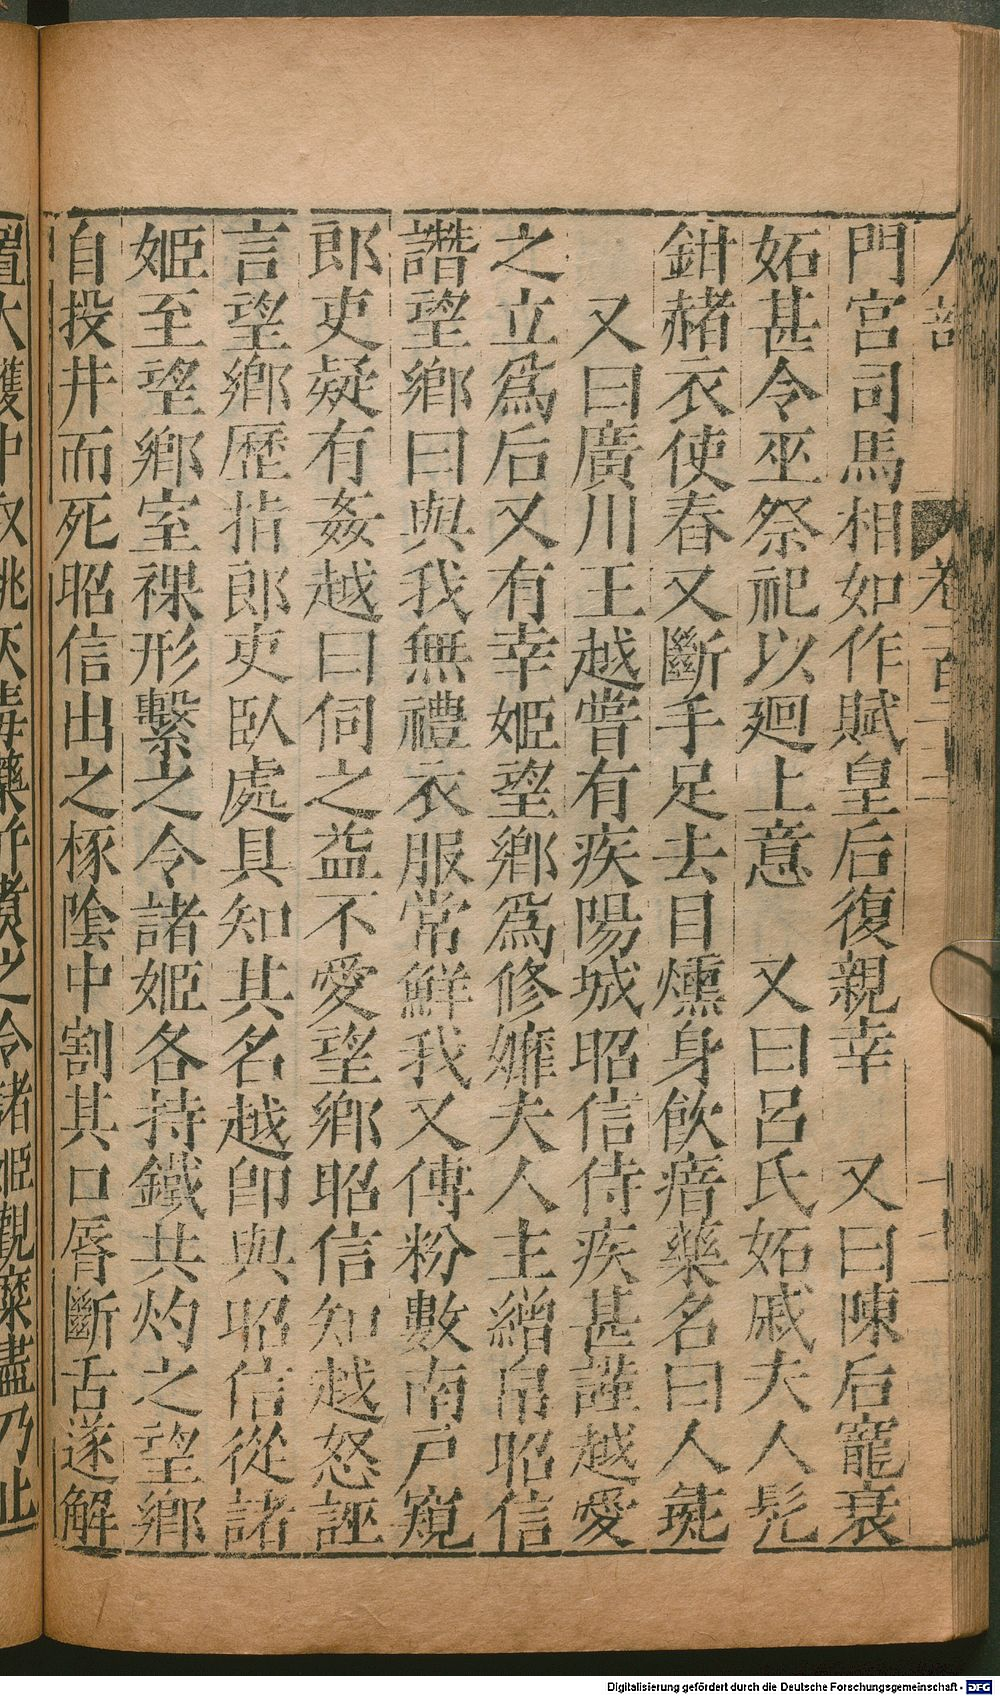 門宮司馬相如作賦皇后復親幸　又曰陳后寵衰
妬甚令巫祭祀以廻上意　又曰呂氏妬戚夫人髠
鉗赭衣使舂又斷手足去目燻身飲瘖藥名曰人彘
又曰廣川王越嘗有疾陽城昭信侍疾甚謹越愛
之立爲后又有幸姬望鄉爲修嫵夫人主繒帛昭信
譖望鄉曰與我無禮衣服常鮮我又傅粉數南戶窺
郎吏疑有姦越曰伺之益不愛望鄉昭信知越怒誣
言望鄉歷指郎吏臥處具知其名越即與昭信從諸
姬至望鄉室裸形繫之令諸姬各持鐵共灼之望鄉
自投井而死昭信出之椓陰中割其口脣斷舌遂解
置大鑊中取桃灰毒藥并煑之令諸姬觀糜盡乃止
Digitalisierung gefördert durch die Deutsche Forschungsgemeinschaft - DFG